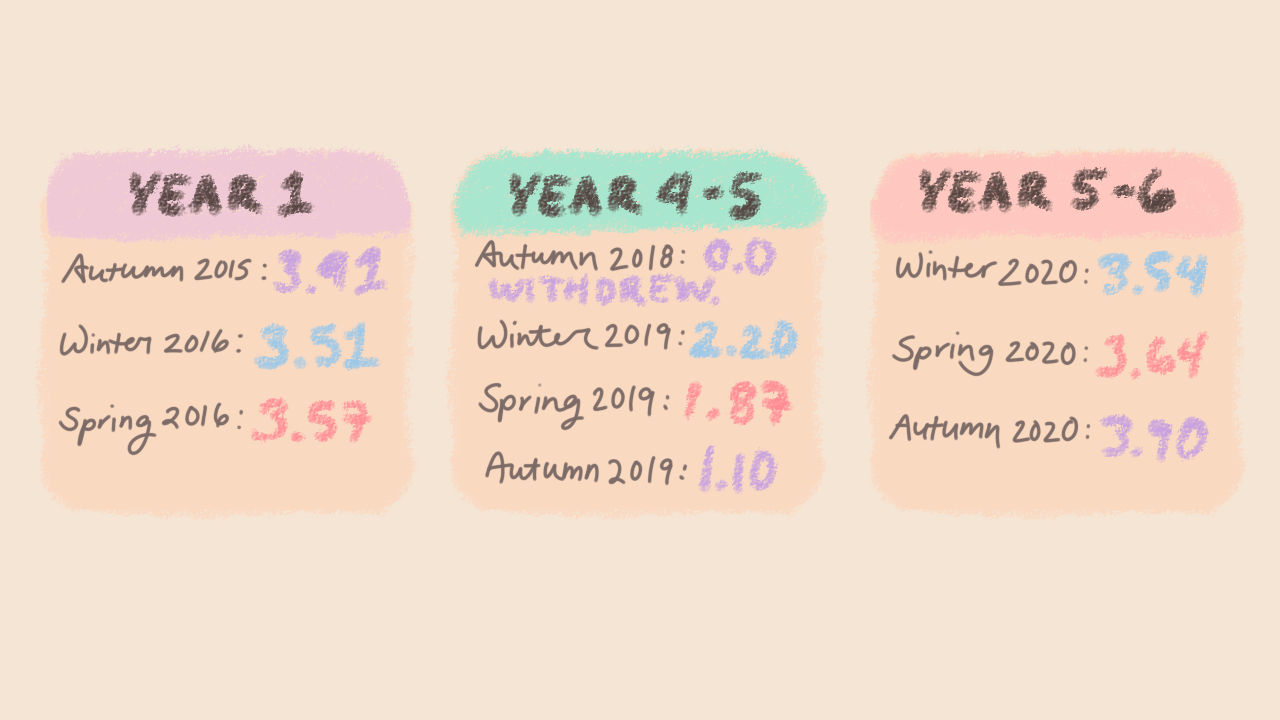 YEAR 1
Autumn 2015: 3.91
Winter 2016: 3.51
Spring 2016: 3.57
YEAR 4-5
Autumn 2018: 0.0
WITHDREW.
Winter 2019: 2.20
Spring 2019: 1.87
Autumn 2019: 1.10
YEAR 5-6
Winter 2020: 3.54
Spring 2020: 3.64
Autumn 2020: 3.90